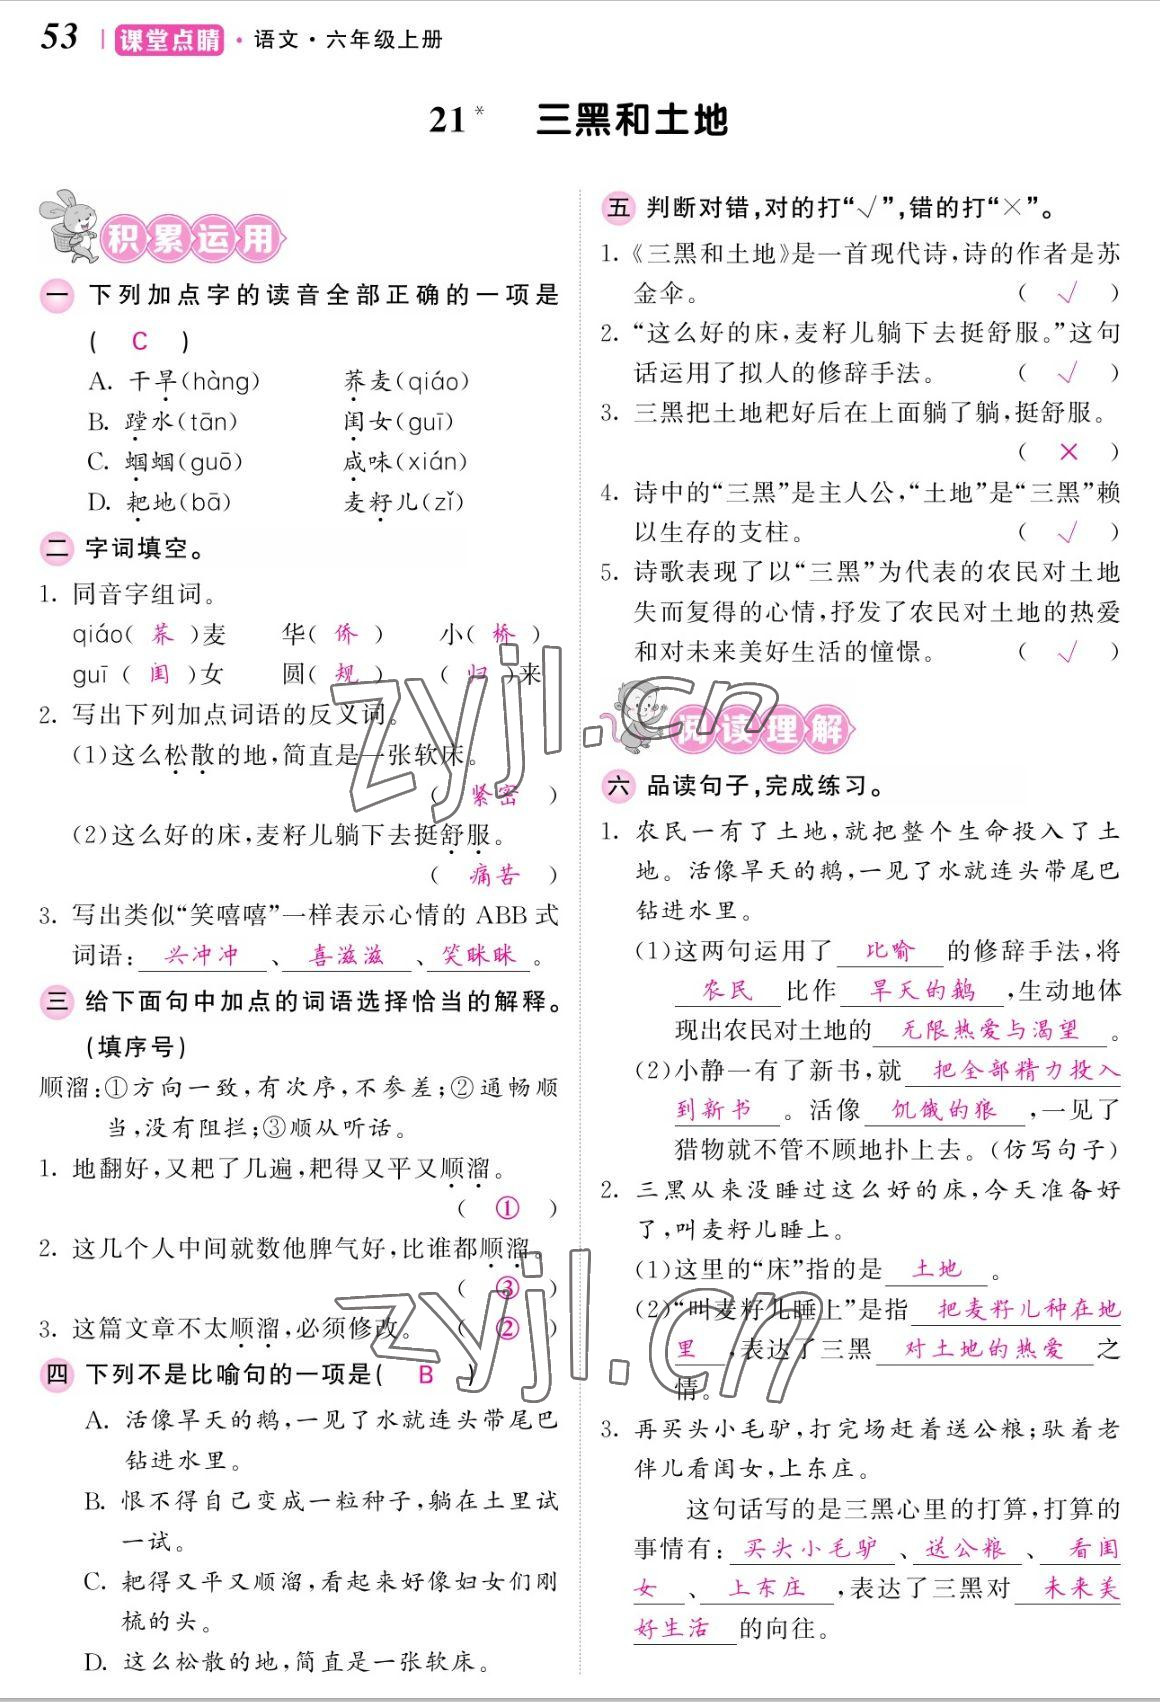 53 课堂点睛·语文·六年级上册
21* 三黑和土地
积累运用
一 下列加点字的读音全部正确的一项是
( C )
A. 干旱(hàng) 荞麦(qiáo)
B. 蹚水(tān) 闺女(guī)
C. 蝈蝈(guō) 咸味(xián)
D. 耙地(bā) 麦籽儿(zǐ)
二 字词填空。
1. 同音字组词。
qiáo( 荞 )麦 华( 侨 ) 小( 桥 )
guī ( 闺 )女 圆( 规 ) ( 归 )来
2. 写出下列加点词语的反义词。
(1)这么松散的地,简直是一张软床。
( 紧密 )
(2)这么好的床,麦籽儿躺下去挺舒服。
( 痛苦 )
3. 写出类似“笑嘻嘻”一样表示心情的 ABB 式
词语: 兴冲冲 、 喜滋滋 、 笑眯眯 。
三 给下面句中加点的词语选择恰当的解释。
(填序号)
顺溜:①方向一致,有次序,不参差;②通畅顺
当,没有阻拦;③顺从听话。
1. 地翻好,又耙了几遍,耙得又平又顺溜。
( ① )
2. 这几个人中间就数他脾气好,比谁都顺溜。
( ③ )
3. 这篇文章不太顺溜,必须修改。 ( ② )
四 下列不是比喻句的一项是( B )
A. 活像旱天的鹅,一见了水就连头带尾巴
钻进水里。
B. 恨不得自己变成一粒种子,躺在土里试
一试。
C. 耙得又平又顺溜,看起来好像妇女们刚
梳的头。
D. 这么松散的地,简直是一张软床。
五 判断对错,对的打“√”,错的打“×”。
1.《三黑和土地》是一首现代诗,诗的作者是苏
金伞。 ( √ )
2. “这么好的床,麦籽儿躺下去挺舒服。”这句
话运用了拟人的修辞手法。 ( √ )
3. 三黑把土地耙好后在上面躺了躺,挺舒服。
( × )
4. 诗中的“三黑”是主人公,“土地”是“三黑”赖
以生存的支柱。 ( √ )
5. 诗歌表现了以“三黑”为代表的农民对土地
失而复得的心情,抒发了农民对土地的热爱
和对未来美好生活的憧憬。 ( √ )
阅读理解
六 品读句子,完成练习。
1. 农民一有了土地,就把整个生命投入了土
地。活像旱天的鹅,一见了水就连头带尾巴
钻进水里。
(1)这两句运用了 比喻 的修辞手法,将
农民 比作 旱天的鹅 ,生动地体
现出农民对土地的 无限热爱与渴望 。
(2)小静一有了新书,就 把全部精力投入
到新书 。活像 饥饿的狼 ,一见了
猎物就不管不顾地扑上去。(仿写句子)
2. 三黑从来没睡过这么好的床,今天准备好
了,叫麦籽儿睡上。
(1)这里的“床”指的是 土地 。
(2)“叫麦籽儿睡上”是指 把麦籽儿种在地
里 ,表达了三黑 对土地的热爱 之
情。
3. 再买头小毛驴,打完场赶着送公粮;驮着老
伴儿看闺女,上东庄。
这句话写的是三黑心里的打算,打算的
事情有: 买头小毛驴 、 送公粮 、 看闺
女 、 上东庄 ,表达了三黑对 未来美
好生活 的向往。
zyjl.cn
zyjl.cn